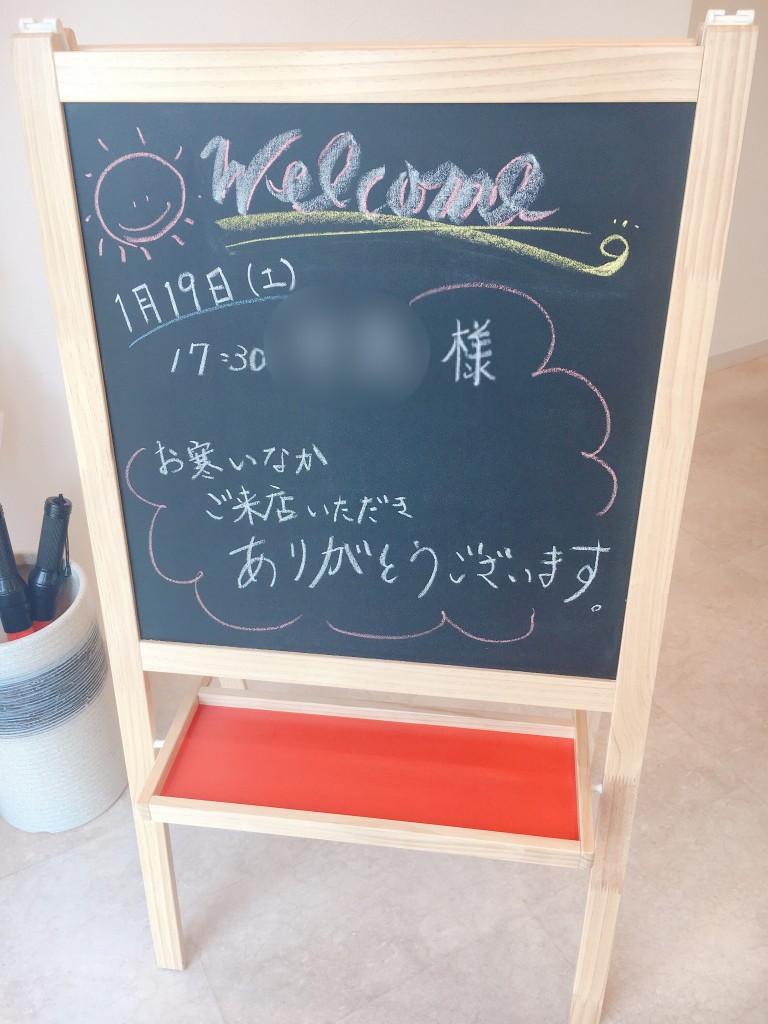 Welcome
1月19日(土)
17:30 様
お寒いなか
ご来店いただき
ありがとうございます。